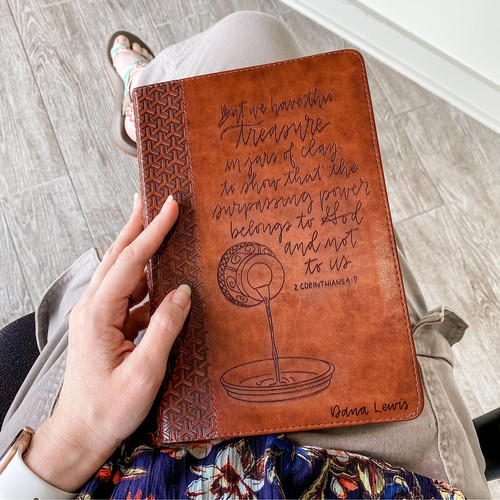 But we have this
treasure
in jars of clay,
to show that the
surpassing power
belongs to God
and not
to us.
2 CORINTHIANS 4:7
Dana Lewis